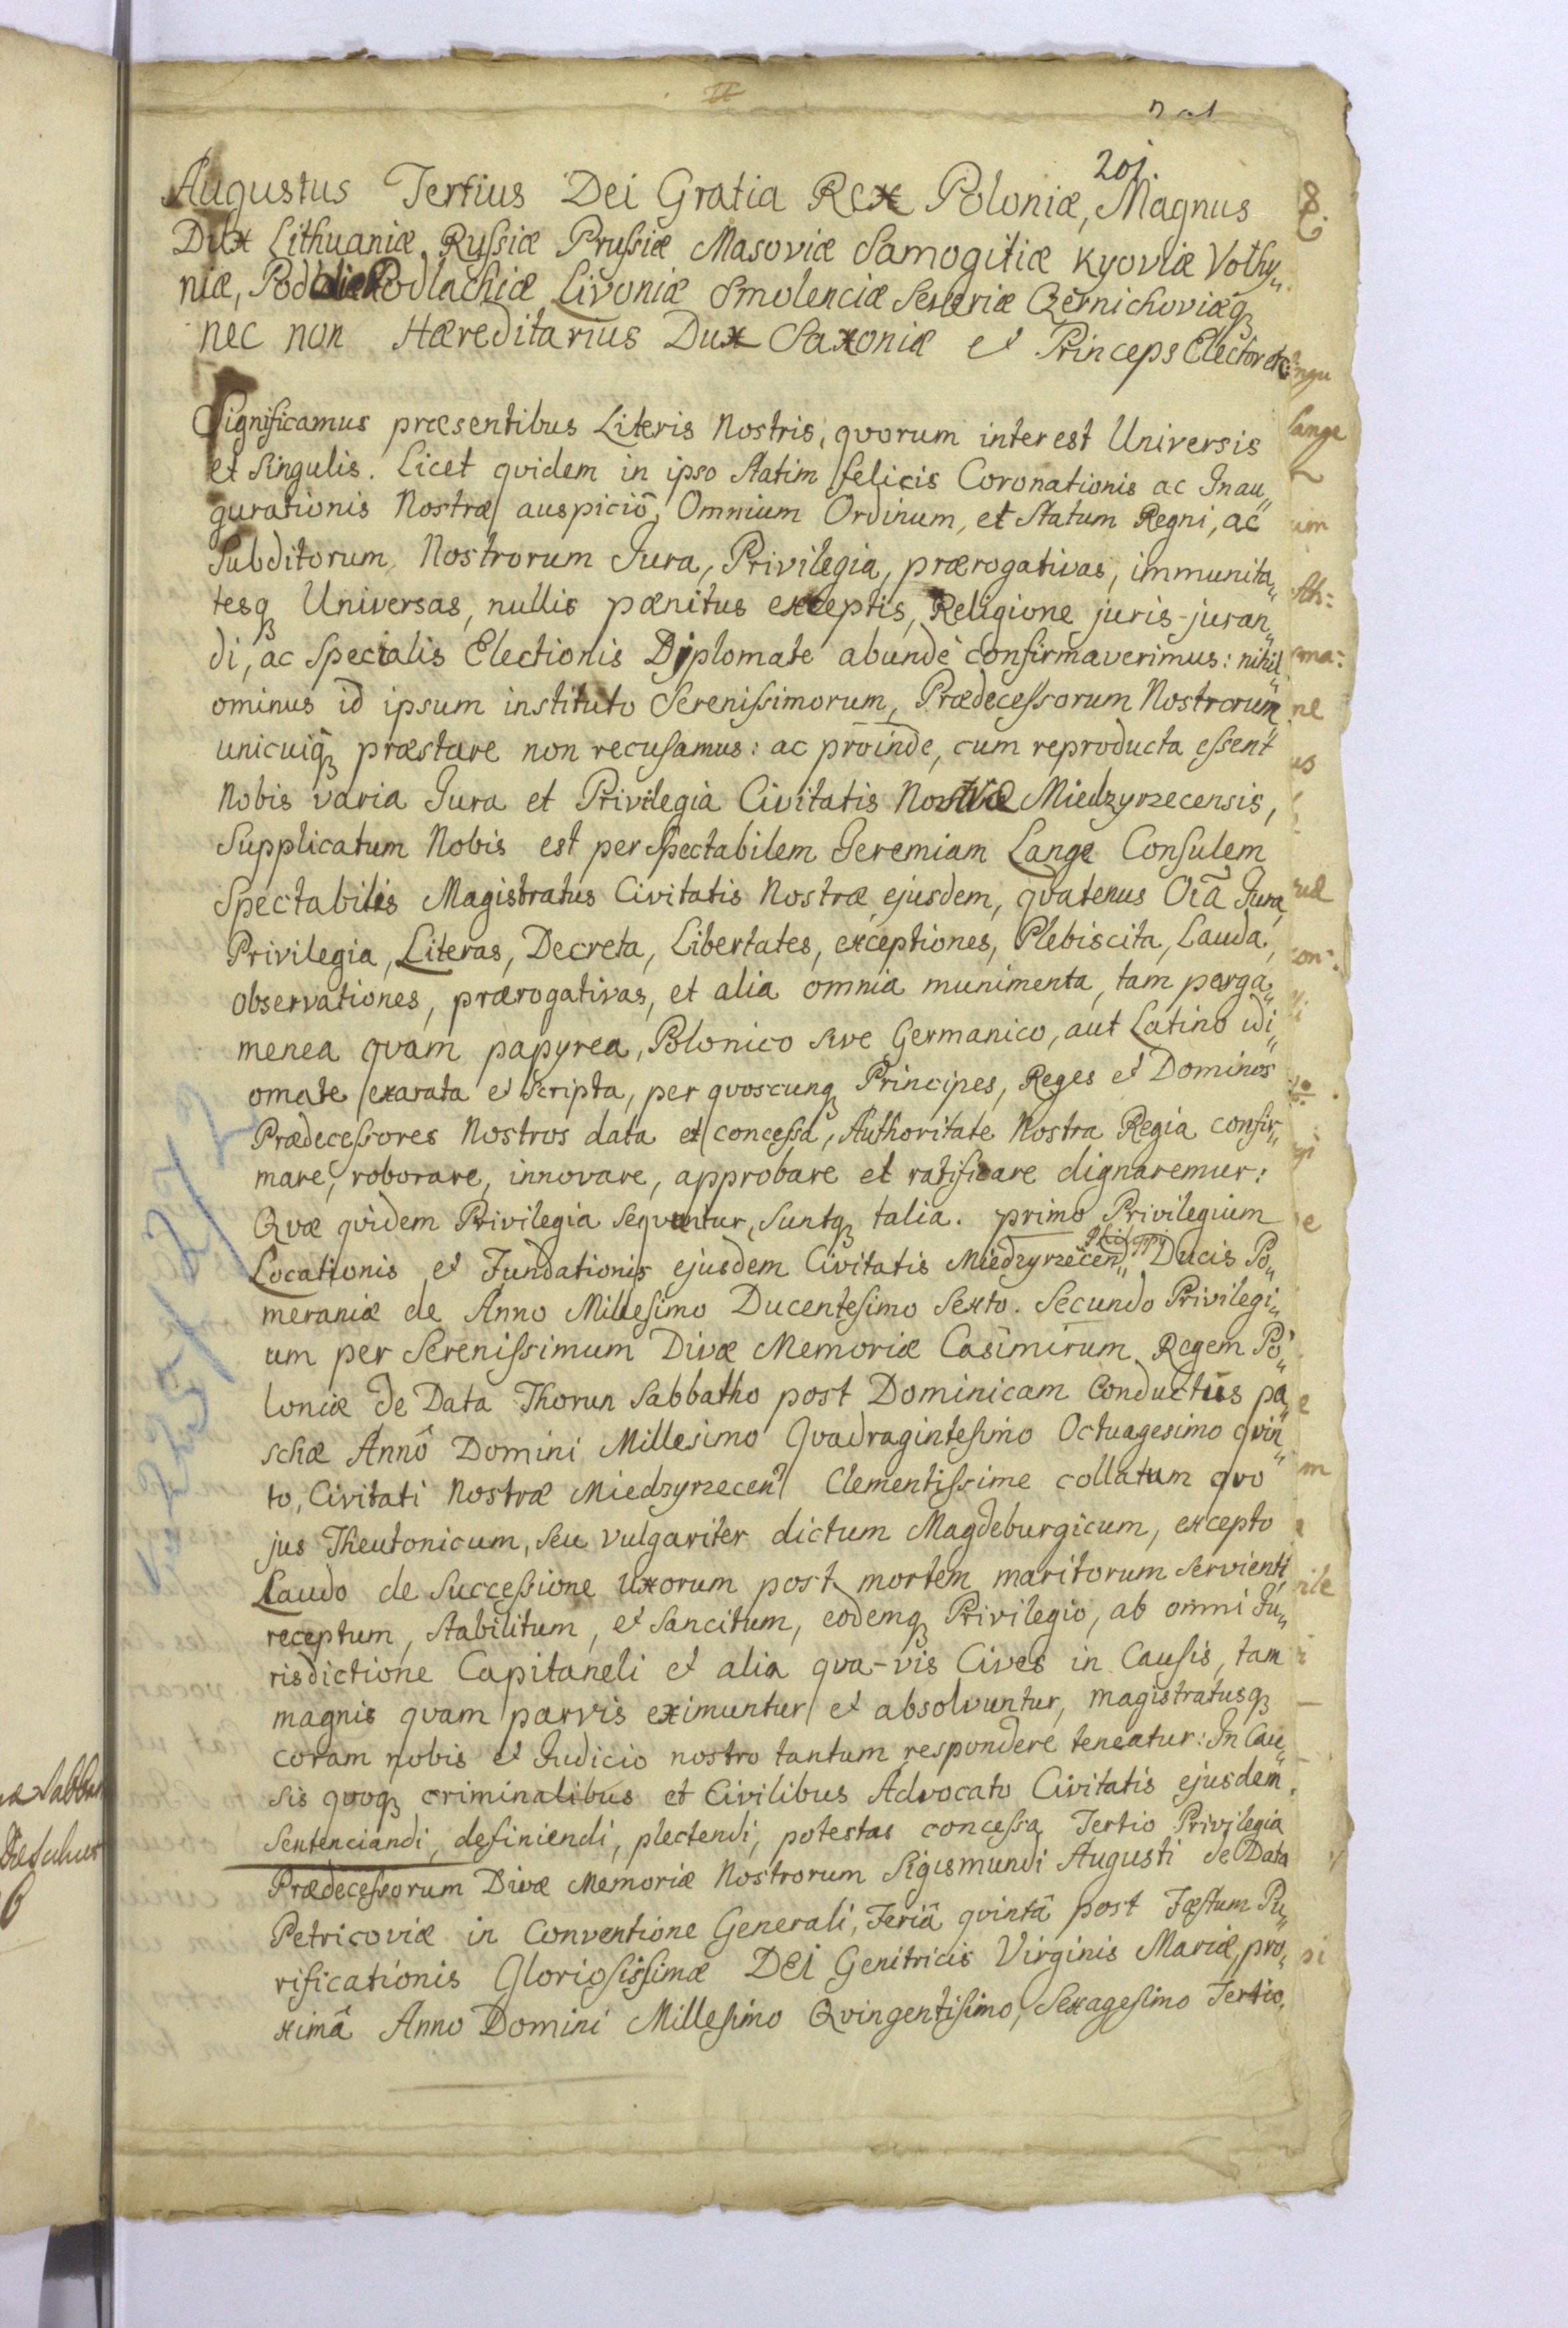 201.
Augustus Tertius Dei Gratia Rex Poloniæ, Magnus
Dux Lithuaniæ Russiæ Prussiæ Masoviæ Samogitiæ Kyoviæ Volhy„
niæ, Podoliæ Podlachiæ Livoniæ Smolenciæ Severiæ Czernichoviæq
nec non Hæreditarius Dux Saxoniæ et Princeps Elector etc:
Significamus præsentibus Literis Nostris, qvorum interest Universis
et Singulis. Licet qvidem in ipso Statim felicis Coronationis ac Inau„
gurationis Nostræ auspiciô, Omnium Ordinum, et Statum Regni, ac
Subditorum Nostrorum Jura, Privilegia, prærogativas, immunita„
tesq Universas, nullis pænitus exceptis, Religione juris-juran„
di, ac Specialis Electionis Diplomate abunde confirmaverimus: nihil„
ominus id ipsum instituto Serenissimorum, Prædecessorum Nostrorum
unicuiq præstare non recusamus: ac proinde, cum reproducta essent
Nobis varia Jura et Privilegia Civitatis Nostræ Miedzyrzecensis,
Supplicatum Nobis est per Spectabilem Jeremiam Lange Consulem
Spectabilis Magistratus Civitatis Nostræ ejusdem, qvatenus Oia Jura,
Privilegia, Literas, Decreta, Libertates, exceptiones, Plebiscita, Lauda,
observationes, prærogativas, et alia omnia munimenta, tam perga„
menea qvam papyrea, Polonico sive Germanico, aut Latino idi„
omate exarata et scripta, per qvoscunq Principes, Reges et Dominos
Prædecessores Nostros data et concessa, Authoritate Nostra Regia confir„
mare, roborare, innovare, approbare et ratificare dignaremur:
Qvæ qvidem Privilegia seqvuntur, suntq talia. primo Privilegium
Locationis et Fundationis ejusdem Civitatis Miedzyrzecen„ Philippi Ducis Po„
meraniæ de Anno Millesimo Ducentesimo Sexto. Secundo Privilegi„
um per Serenissimum Divæ Memoriæ Casimirum Regem Po„
loniæ de Data Thorun Sabbatho post Dominicam Conductus pa„
schæ Annô Domini Millesimo Qvadragintesimo Octuagesimo qvin„
to, Civitati Nostræ Miedzyrzecen Clementissime collatum qvo
jus Theutonicum, seu vulgariter dictum Magdeburgicum, excepto
Laudo de Successione Uxorum post mortem maritorum servienti
receptum, stabilitum, et Sancitum, eodemq Privilegio, ab omni Ju„
risdictione Capitaneli et alia qva-vis Cives in Causis, tam
magnis qvam parvis eximuntur et absolvuntur, magistratusq
coram nobis et Judicio nostro tantum respondere teneatur: In Cau„
sis qvoq criminalibus et Civilibus Advocato Civitatis ejusdem.
Sentenciandi, definiendi, plectendi, potestas concessa Tertio Privilegia
Prædecessorum Divæ Memoriæ Nostrorum Sigismundi Augusti de Data
Petricoviæ in Conventione Generali, Feriâ qvintâ post Fæstum Pu„
rificationis Gloriosissimæ DEI Genitricis Virginis Mariæ, pro„
ximâ Anno Domini Millesimo Qvingentisimo, Sexagesimo Tertio,